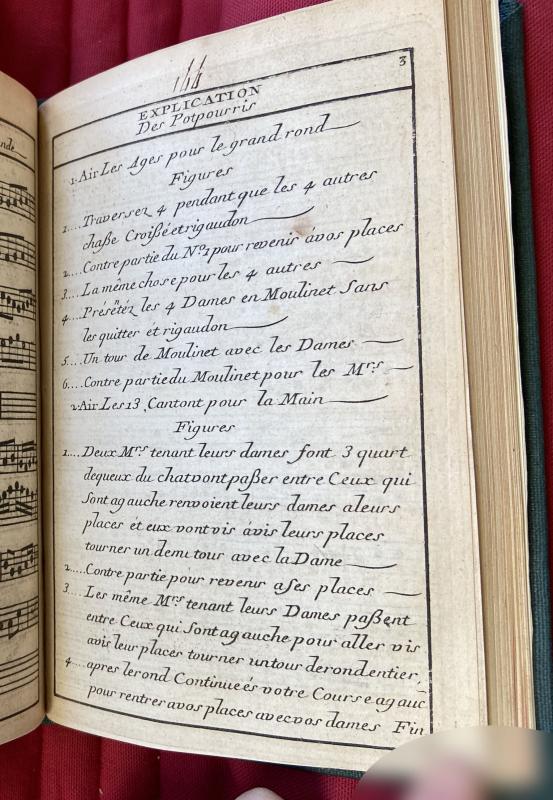 3
EXPLICATION
Des Potpourris
1. Air Les Ages pour le grand rond
Figures
1.... Traversez 4 pendant que les 4 autres
chaße Croißé et rigaudon
2.... Contre partie du No. 1 pour revenir à vos places
3.... La même chose pour les 4 autres
4.... Présẽtéz les 4 Dames en Moulinet Sans
les quitter et rigaudon
5.... Un tour de Moulinet avec les Dames
6.... Contre partie du Moulinet pour les Mrs
2. Air Les 13 Cantont pour la Main
Figures
1.... Deux Mrs tenant leurs dames font 3 quart
de queux du chat vont paßer entre Ceux qui
Sont a gauche renvoient leurs dames a leurs
places et eux vont vis à vis leurs places
tourner un demi tour avec la Dame
2.... Contre partie pour revenir a ses places
3.... Les même Mrs tenant leurs Dames paßent
entre Ceux qui Sont a gauche pour aller vis
avis leur places tourner un tour de rond entier,
4.... apres le rond Continueés votre Course a gauc
pour rentrer a vos places avec vos dames Fin